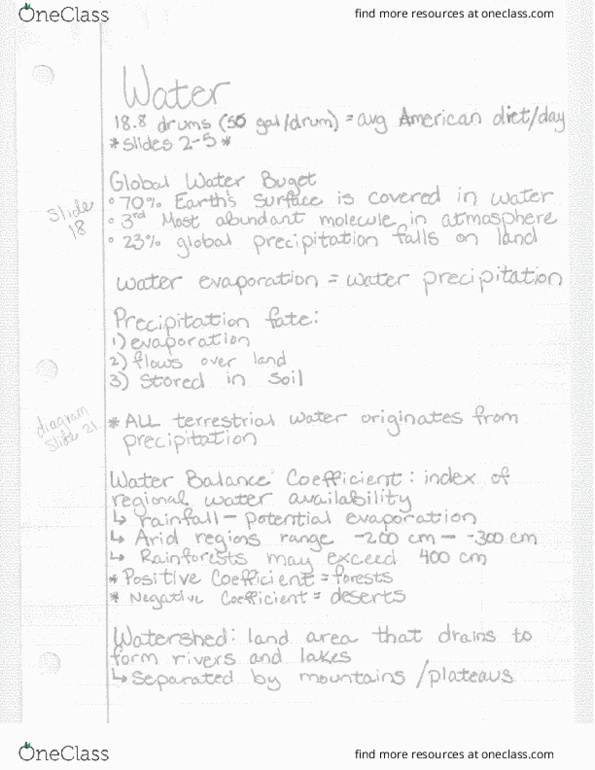 OneClass
find more resources at oneclass.com
Water
18.8 drums (50 gal/drum) = avg American diet/day
*slides 2-5*
Global Water Buget
° 70% Earth's Surface is covered in water
Slide 18
° 3rd Most abundant molecule in atmosphere
° 23% global precipitation falls on land
water evaporation = water precipitation
Precipitation fate:
1) evaporation
2) flows over land
3) Stored in Soil
diagram slide 21
* ALL terrestrial water originates from
precipitation
Water Balance Coefficient: index of
regional water availability
↳ rainfall - potential evaporation
↳ Arid regions range -200 cm - -300 cm
↳ Rainforests may exceed 400 cm
* Positive Coefficient = forests
* Negative Coefficient = deserts
Watershed: land area that drains to
form rivers and lakes
↳ Separated by mountains/plateaus
OneClass
find more resources at oneclass.com